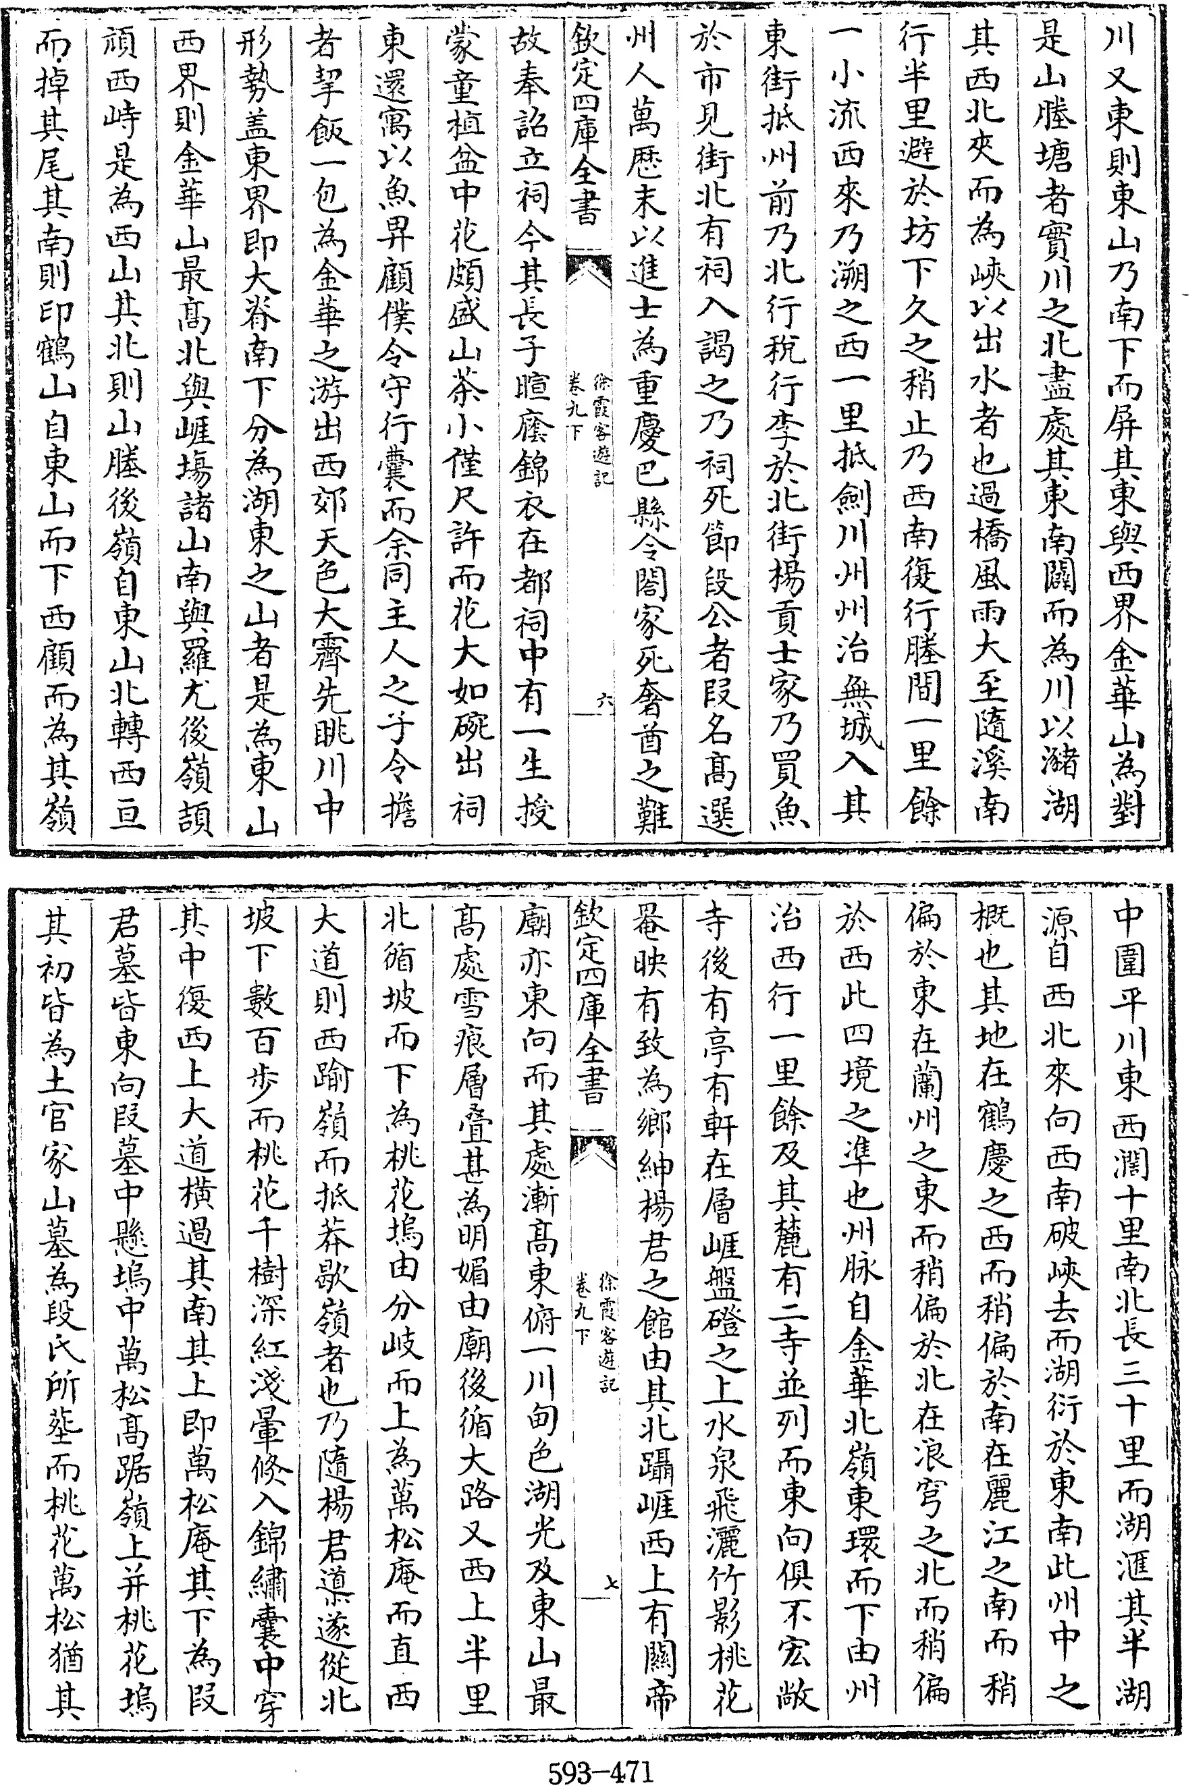 川又東則東山乃南下而屏其東與西界金華山為對
是山塍塘者實川之北盡處其東南闢而為川以瀦湖
其西北夾而為峽以出水者也過橋風雨大至隨溪南
行半里避於坊下久之稍止乃西南復行塍間一里餘
一小流西來乃溯之西一里抵劍川州州治無城入其
東街抵州前乃北行稅行李於北街楊貢士家乃買魚
於市見街北有祠入謁之乃祠死節段公者段名高選
州人萬歷末以進士為重慶巴縣令闔家死奢酋之難
欽定四庫全書
徐霞客遊記
卷九下
六
故奉詔立祠今其長子暄廕錦衣在都祠中有一生授
蒙童植盆中花頗盛山茶小僅尺許而花大如碗出祠
東還寓以魚畀顧僕令守行囊而余同主人之子令擔
者挈飯一包為金華之游出西郊天色大霽先眺川中
形勢盖東界即大脊南下分為湖東之山者是為東山
西界則金華山最高北與崖塲諸山南與羅尤後嶺頡
頏西峙是為西山其北則山塍後嶺自東山北轉西亘
而掉其尾其南則印鶴山自東山而下西顧而為其嶺
中圍平川東西濶十里南北長三十里而湖滙其半湖
源自西北來向西南破峽去而湖衍於東南此州中之
概也其地在鶴慶之西而稍偏於南在麗江之南而稍
偏於東在蘭州之東而稍偏於北在浪穹之北而稍偏
於西此四境之準也州脉自金華北嶺東環而下由州
治西行一里餘及其麓有二寺並列而東向俱不宏敞
寺後有亭有軒在層崖盤磴之上水泉飛灑竹影桃花
罨映有致為鄉紳楊君之館由其北躡崖西上有關帝
欽定四庫全書
徐霞客遊記
卷九下
七
廟亦東向而其處漸高東俯一川甸色湖光及東山最
高處雪痕層叠甚為明媚由廟後循大路又西上半里
北循坡而下為桃花塢由分岐而上為萬松庵而直西
大道則西踰嶺而抵莽歇嶺者也乃隨楊君導遂從北
坡下數百步而桃花千樹深紅淺暈倏入錦繡囊中穿
其中復西上大道橫過其南其上即萬松庵其下為段
君墓皆東向段墓中懸塢中萬松高踞嶺上并桃花塢
其初皆為土官家山墓為段氏所塟而桃花萬松猶其
593-471